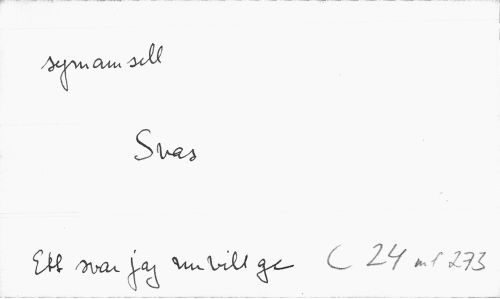 symamsell
Svas
Ett svar jag nu vill ge C 24 nr 273